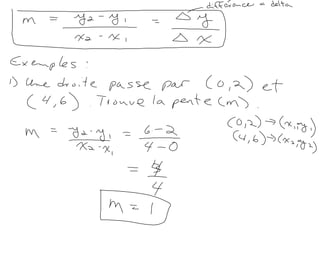 différence = delta
m = y₂ - y₁ / x₂ - x₁ = Δ y / Δ x
Exemples :
1) Une droite passe par (0,2) et
(4,6). Trouve la pente (m).
(0,2) → (x₁, y₁)
(4,6) → (x₂, y₂)
m = y₂ - y₁ / x₂ - x₁ = 6 - 2 / 4 - 0
= 4 / 4
m = 1